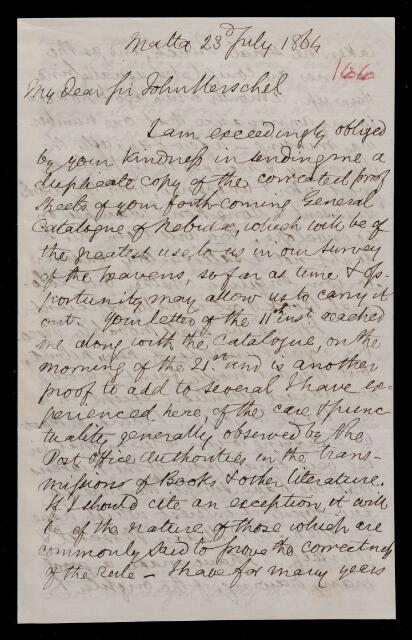 Malta 23d July 1864
166
My Dear Sir John Herschel
I am exceedingly obliged
by your kindness in sending me a
duplicate copy of the corrected proof
sheets of your forth-coming General
Catalogue of Nebulæ, which will be of
the greatest use to us in our survey
of the heavens, so far as time & op-
portunity may allow us to carry it
out. Your letter of the 11th inst. reached
me along with the Catalogue, on the
morning of the 21st and is another
proof to add to several I have ex-
perienced here, of the care & punc-
tuality generally observed by the
Post Office Authorities in the trans-
missions of Books & other literature.
If I should cite an exception, it will
be of the nature of those which are
commonly said to prove the correctness
of the rule – I have for many years